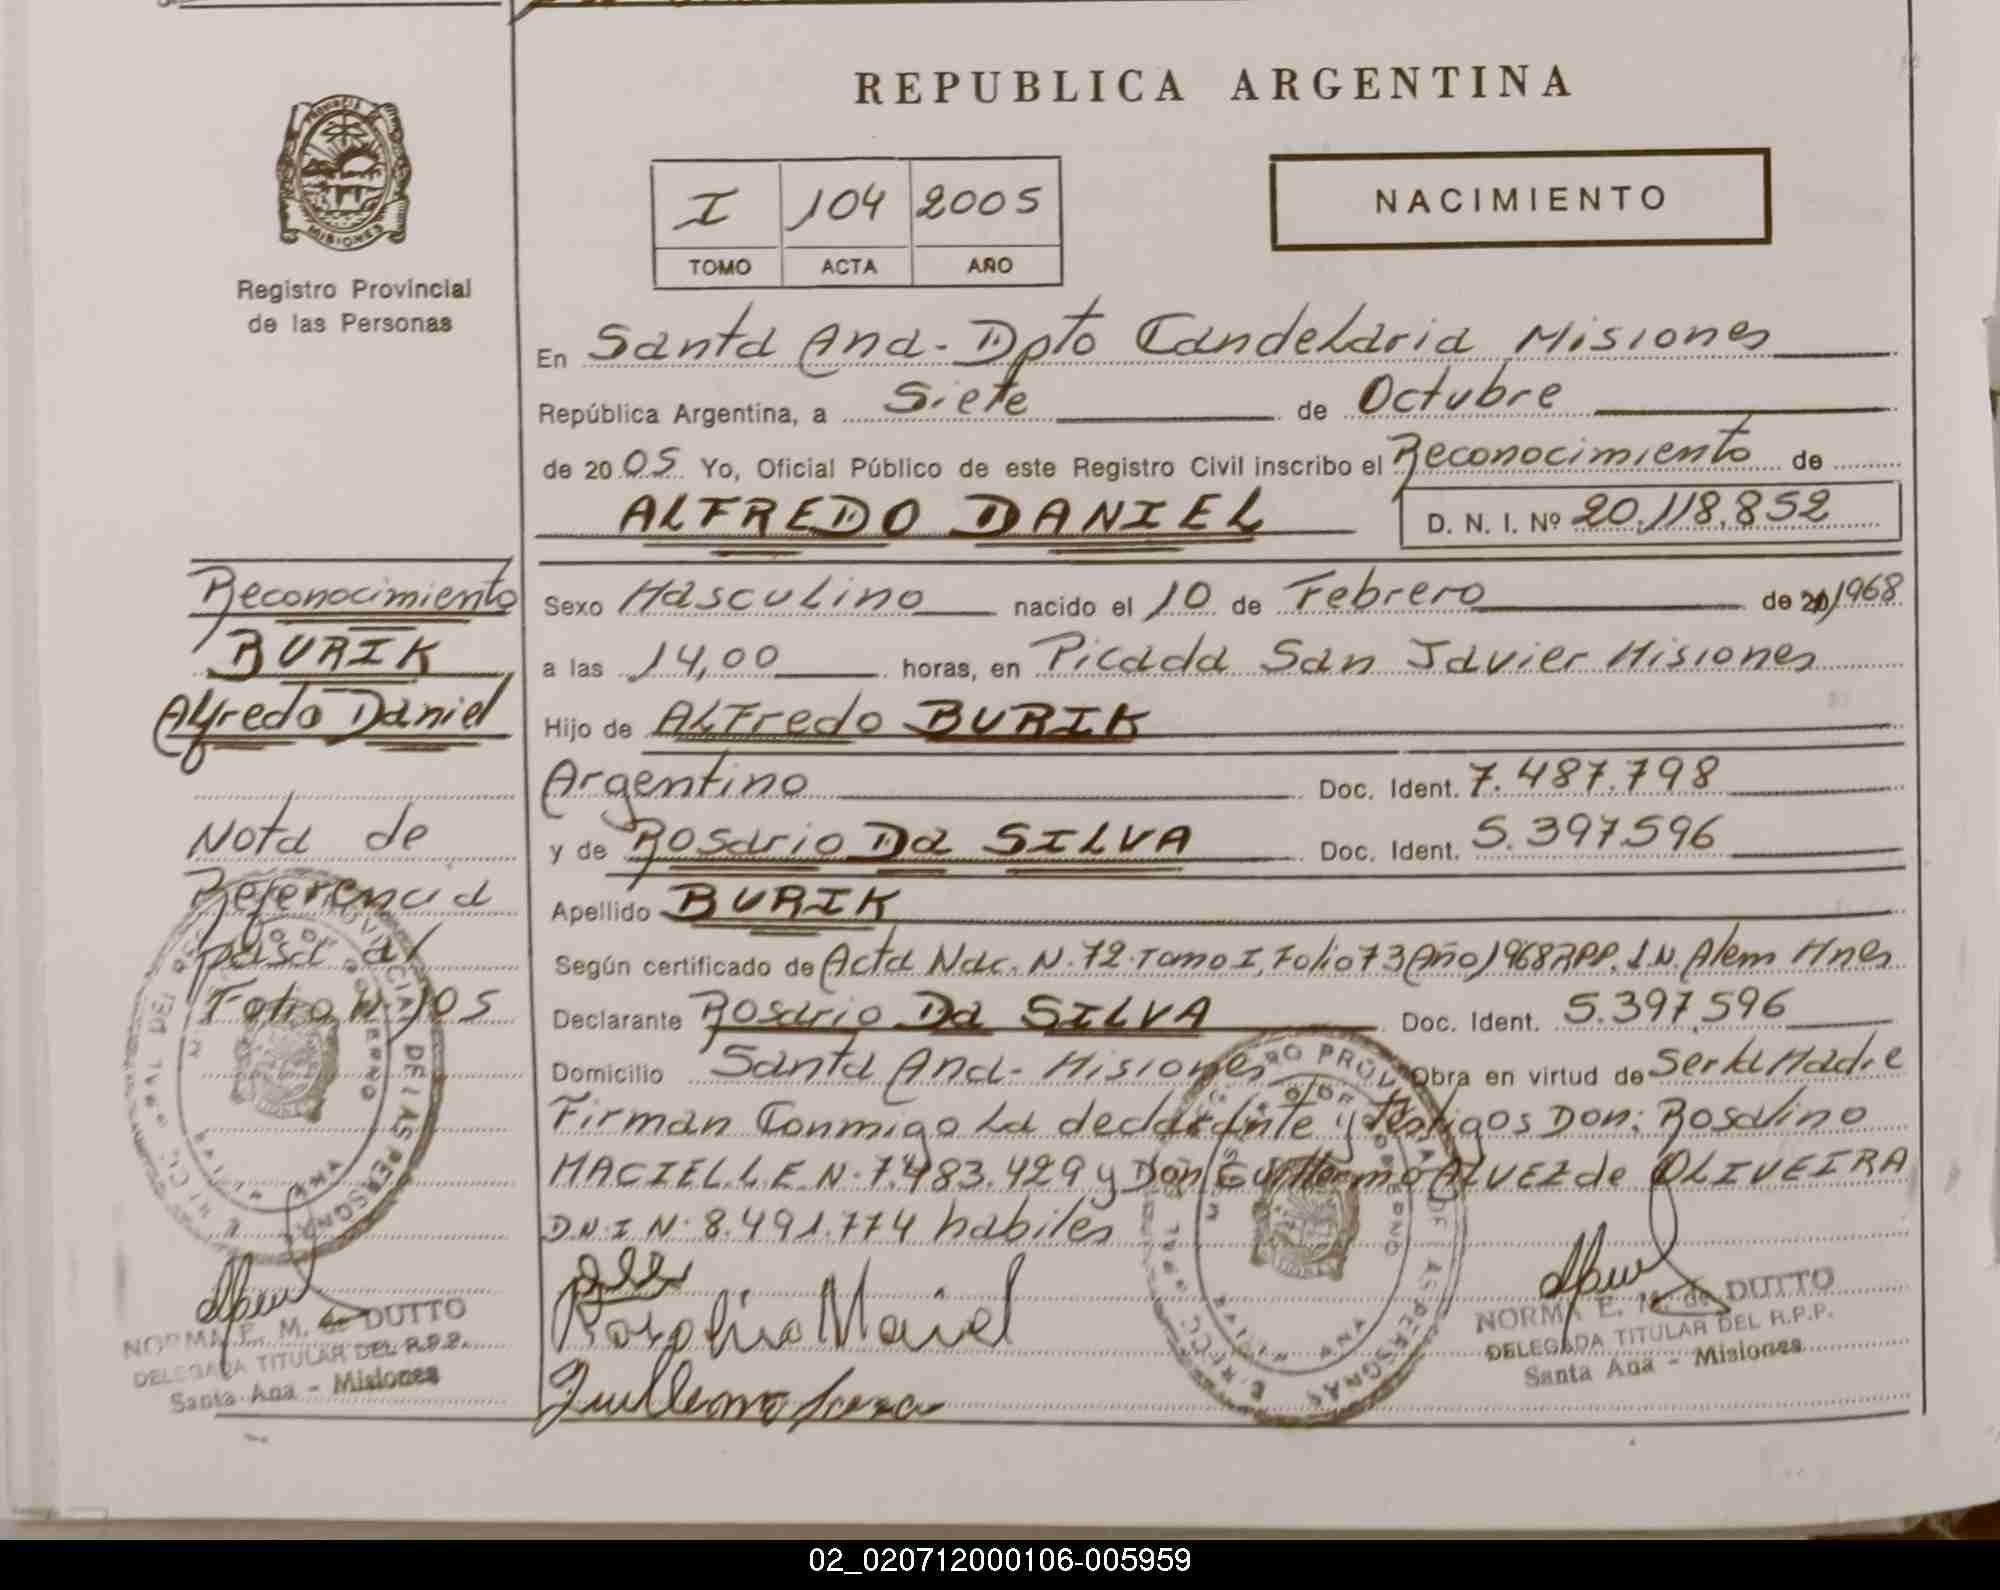 REPUBLICA ARGENTINA
PROVINCIA
MISIONES
Registro Provincial
de las Personas
I 104 2005
TOMO ACTA AÑO
NACIMIENTO
En Santa Ana - Dpto Candelaria Misiones
República Argentina, a Siete de Octubre
de 2005 Yo, Oficial Público de este Registro Civil inscribo el Reconocimiento de
ALFREDO DANIEL D. N. I. Nº 20.118.852
Sexo Masculino nacido el 10 de Febrero de 20/1968
a las 14,00 horas, en Picada San Javier Misiones
Hijo de ALFredo BURIK
Argentino Doc. Ident. 7.487.798
y de Rosario Da SILVA Doc. Ident. 5.397.596
Apellido BURIK
Según certificado de Acta Nac. N. 72 Tomo I, Folio 73 Año 1968 RPP. L.N. Alem Mnes
Declarante Rosario Da SILVA Doc. Ident. 5.397.596
Domicilio Santa Ana - Misiones Obra en virtud de Ser la Madre
Firman Conmigo La declarante y Testigos Don: Rosalino
MACIEL L.E.N. 7.483.429 y Don Guillermo ALVEZ de OLIVEIRA
D.N.I N. 8.491.774 habiles
Rosalino Maciel
Guillermo
NORMA E. M. de DUTTO
DELEGADA TITULAR DEL R.P.P.
Santa Ana - Misiones
Reconocimiento
BURIK
Alfredo Daniel
Nota de
Referencia
pasa al
Folio N. 105
NORMA E. M. de DUTTO
DELEGADA TITULAR DEL R.P.P.
Santa Ana - Misiones
02_020712000106-005959